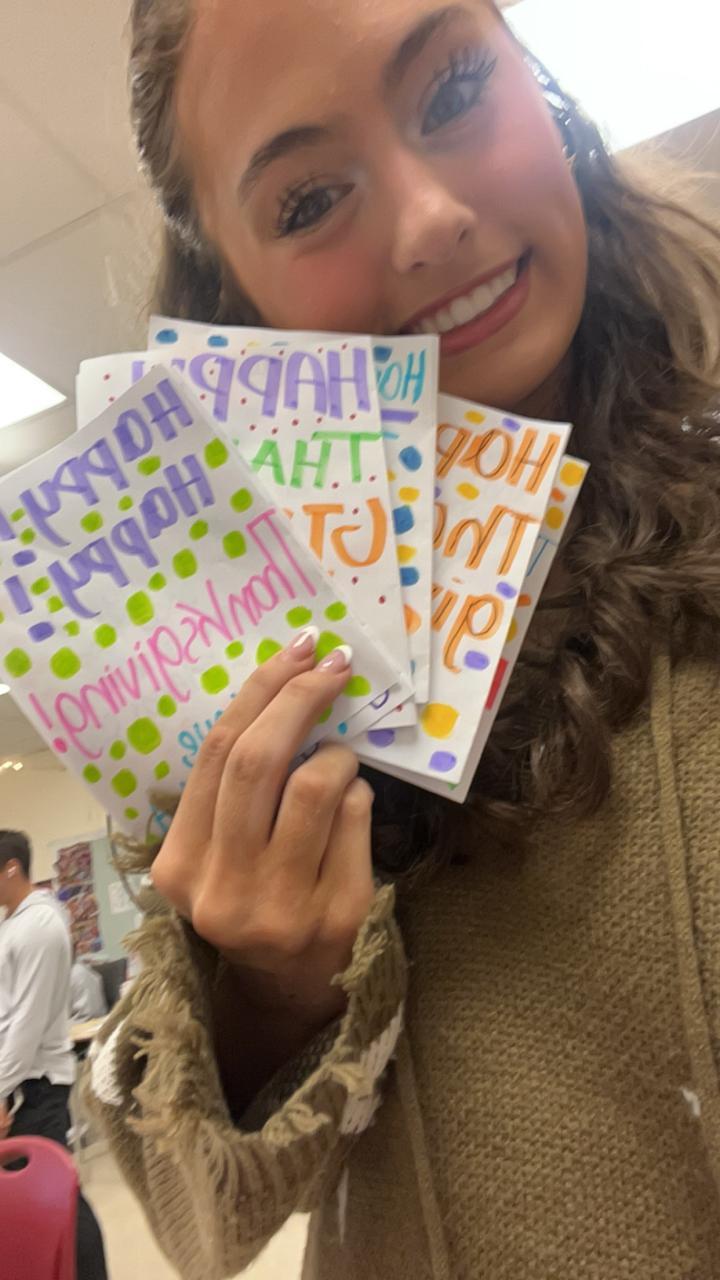 Happy!
Happy!
Thanksgiving!
HAPPY
THA
GI
HO
Hap
Tha
giv